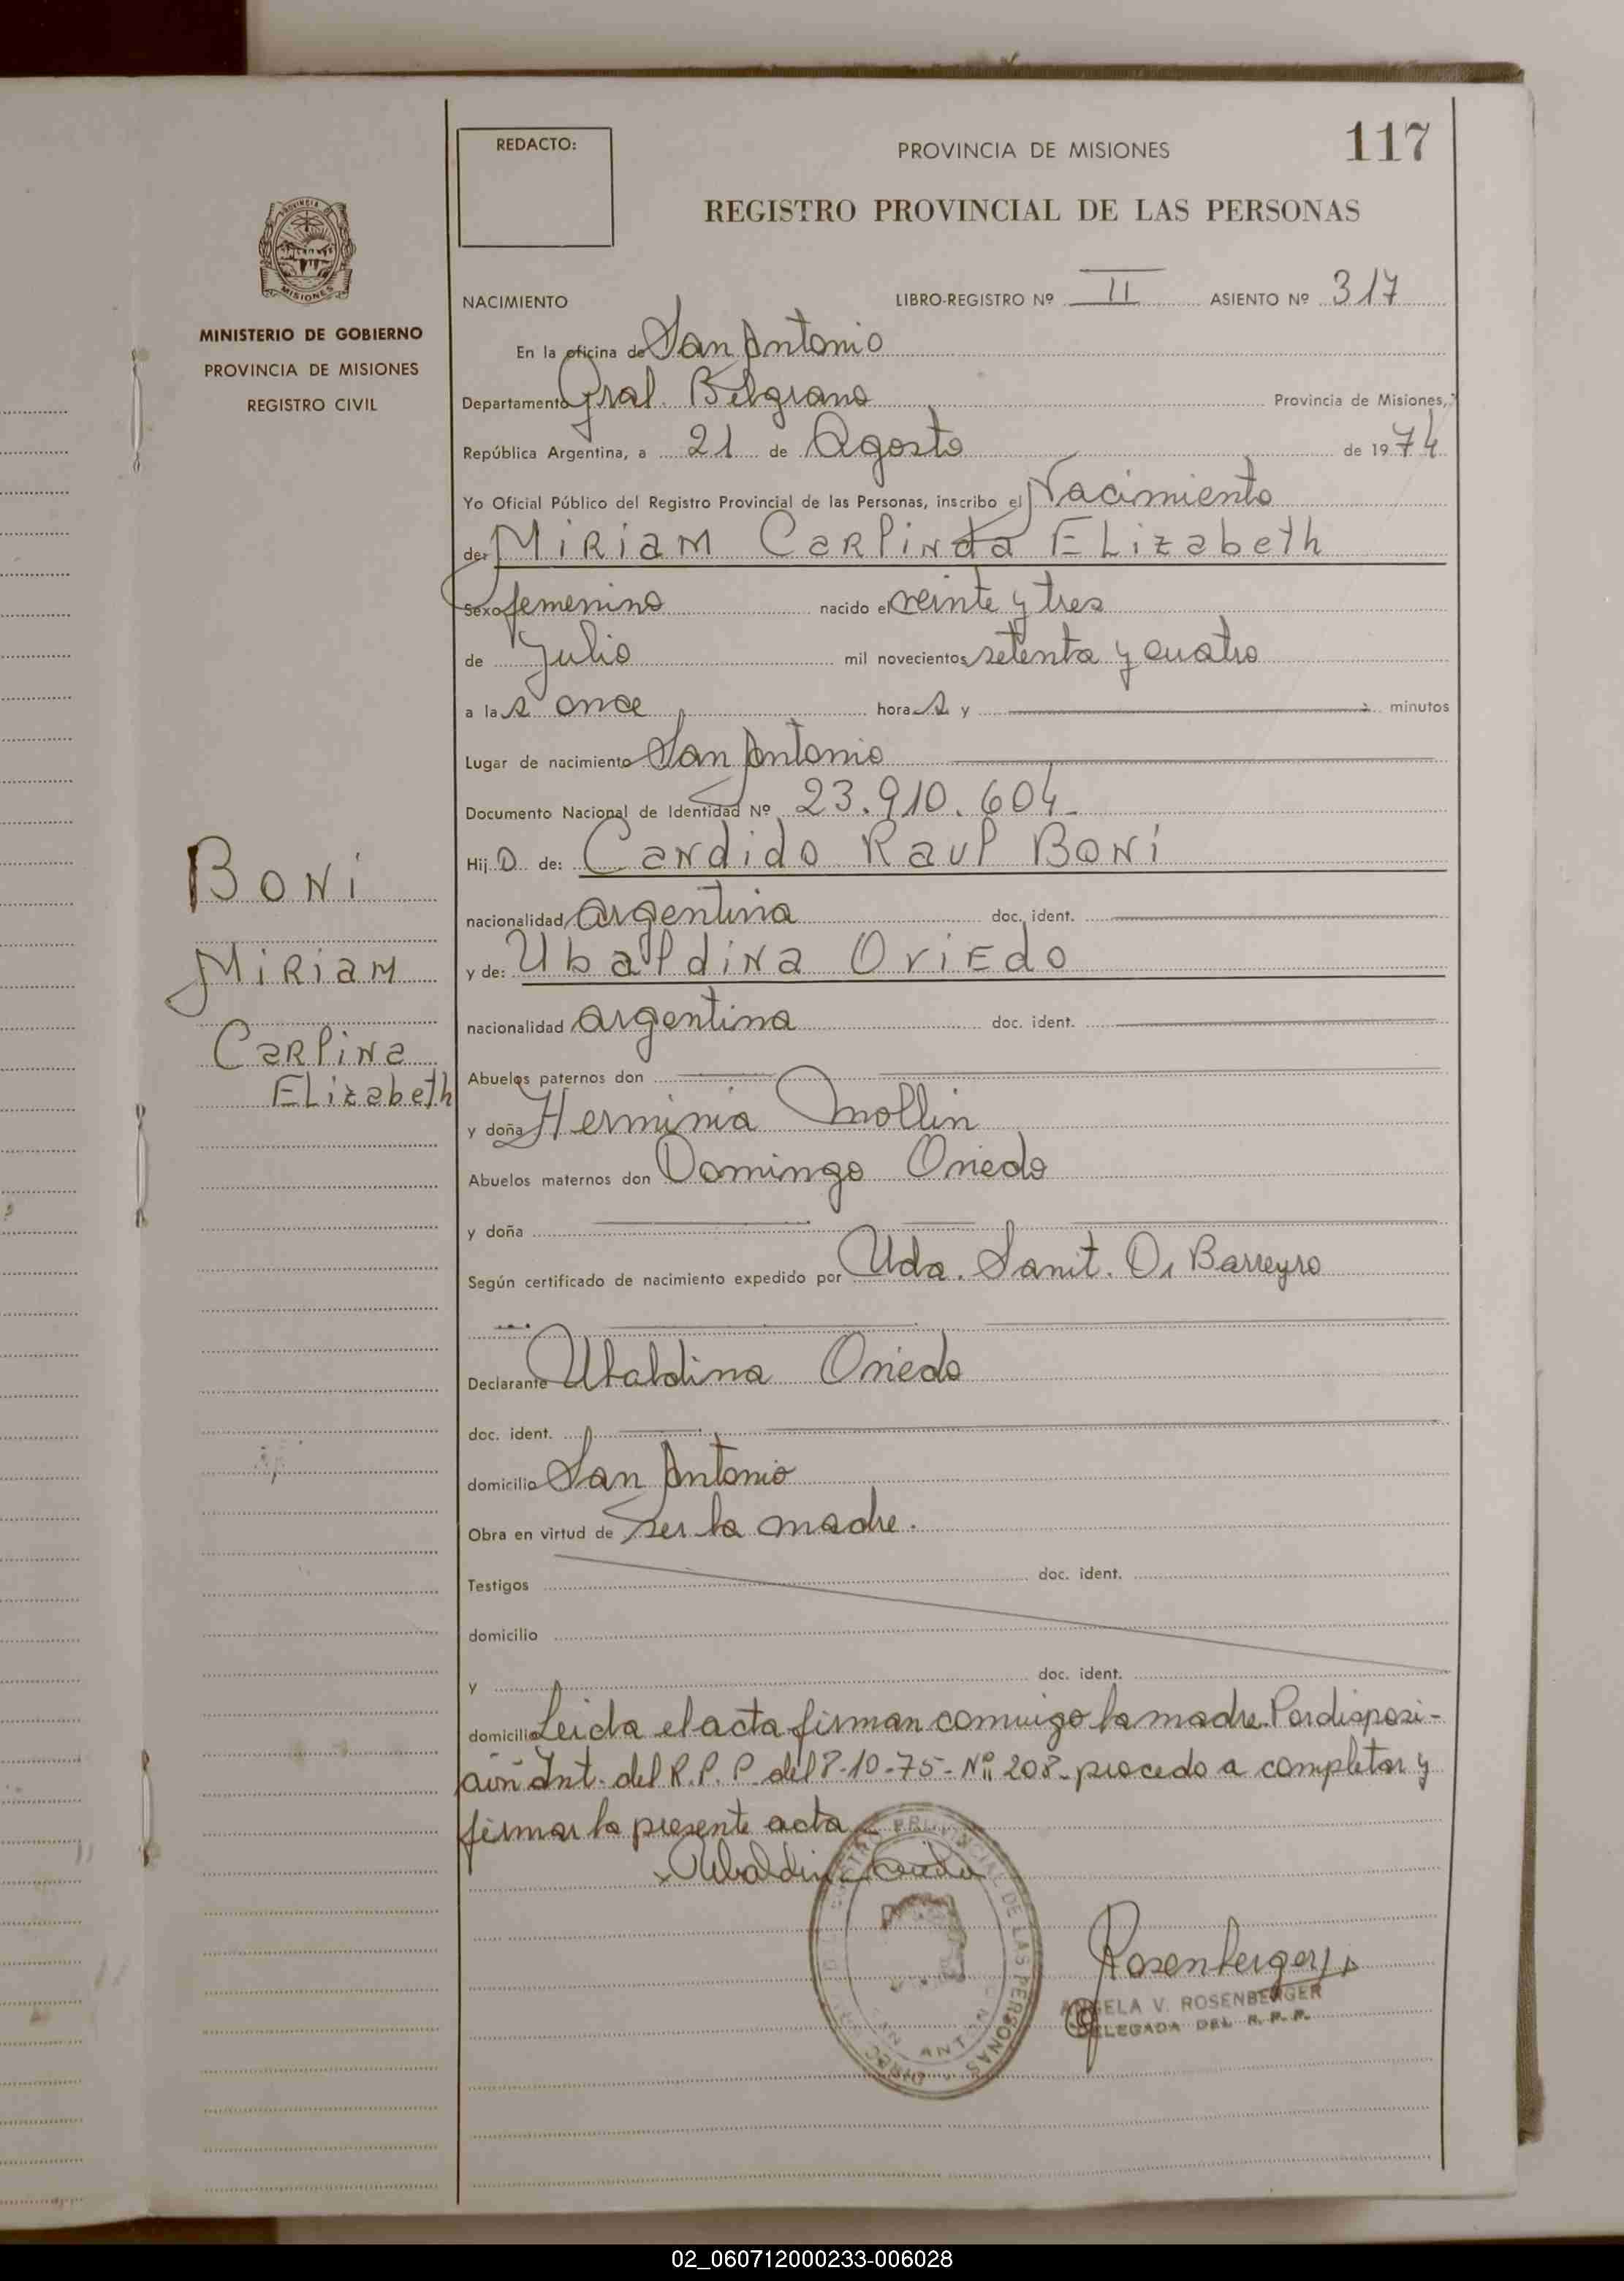 117
REDACTO:
PROVINCIA DE MISIONES
REGISTRO PROVINCIAL DE LAS PERSONAS
PROVINCIA
MISIONES
MINISTERIO DE GOBIERNO
PROVINCIA DE MISIONES
REGISTRO CIVIL
NACIMIENTO LIBRO-REGISTRO Nº II ASIENTO Nº 317
En la oficina de San Antonio
Departamento Gral. Belgrano Provincia de Misiones,
República Argentina, a 21 de Agosto de 1974
Yo Oficial Público del Registro Provincial de las Personas, inscribo el Nacimiento
de: Miriam Carlinda Elizabeth
Sexo femenino nacido el veinte y tres
de Julio mil novecientos setenta y cuatro
a las once horas y minutos
Lugar de nacimiento San Antonio
Documento Nacional de Identidad Nº 23.910.604
Hija de: Candido Raul Boni
nacionalidad argentina doc. ident.
y de: Ubaldina Oviedo
nacionalidad argentina doc. ident.
Abuelos paternos don
y doña Herminia Mollin
Abuelos maternos don Domingo Oviedo
y doña
Según certificado de nacimiento expedido por Uda. Sanit. D. Barreyro
Declarante Ubaldina Oviedo
doc. ident.
domicilio San Antonio
Obra en virtud de ser la madre.
Testigos doc. ident.
domicilio
y doc. ident.
domicilio Leida el acta firman conmigo la madre. Por disposi-
ción Int. del R.P.P. del 8-10-75- Nº 208- procedo a completar y
firmar la presente acta
Ubaldina Oviedo
Rosenberger
ANGELA V. ROSENBERGER
DELEGADA DEL R.P.P.
Boni
Miriam
Carlina
Elizabeth
02_060712000233-006028